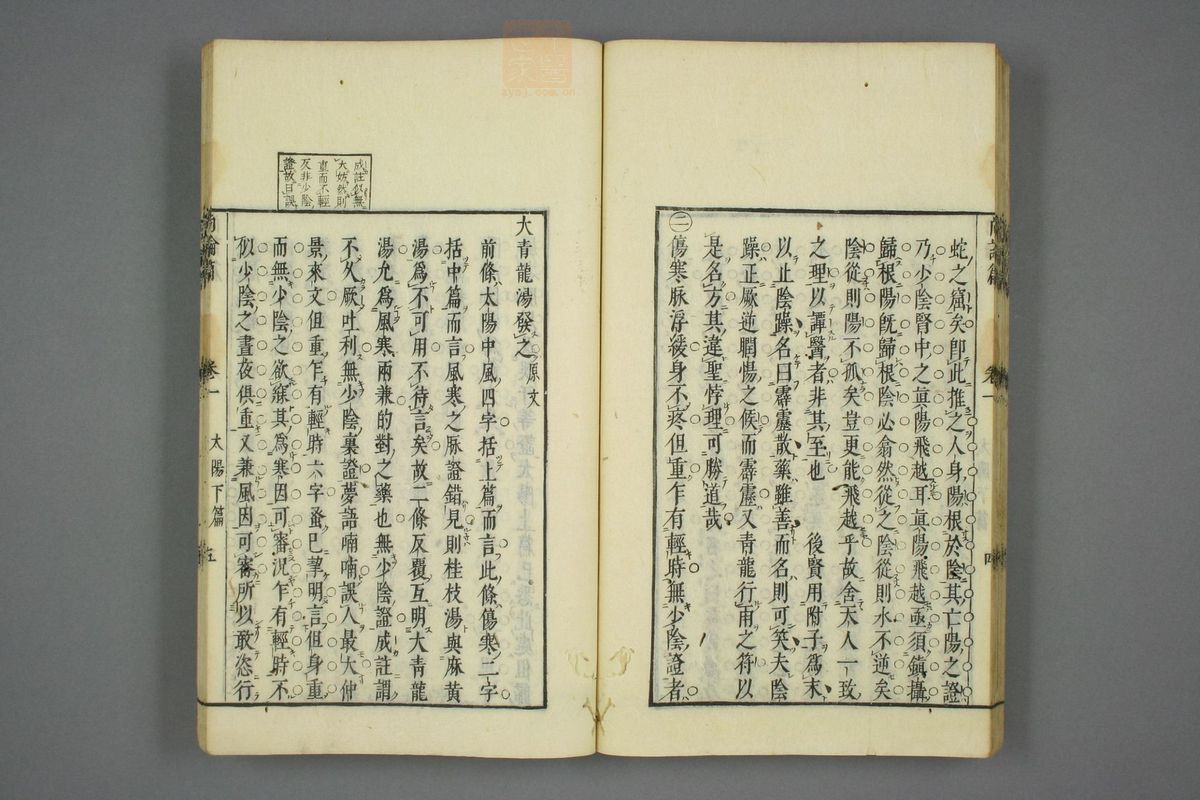 蛇之窟矣卽此推之人身陽根於陰其亡陽之證
乃少陰腎中之眞陽飛越耳眞陽飛越亟須鎮攝
歸根陽旣歸根陰必翕然從之陰從則水不逆矣
陰從則陽不孤矣豈更能飛越乎故舍天人一致
之理以譚醫者非其至也　後賢用附子爲末
以止陰躁名曰霹靂散藥雖善而名則可笑夫陰
躁正厥逆瞤惕之候而霹靂又青龍行雨之符以
是名方其違聖悖理可勝道哉
㊁傷寒脉浮緩身不疼但重乍有輕時無少陰證者
卷一
四
大青龍湯發之原文
前條太陽中風四字括上篇而言此條傷寒二字
括中篇而言風寒之脉證錯見則桂枝湯與麻黄
湯爲不可用不待言矣故二條反覆互明大青龍
湯允爲風寒兩兼的對之藥也無少陰證成註謂
不久厥吐利無少陰裏證夢語喃喃誤人最大仲
景來文但重乍有輕時六字蚤巳挈明言但身重
而無少陰之欲寐其爲寒因可審況乍有輕時不
似少陰之晝夜俱重又兼風因可審所以敢恣行
成註似無
大妨然則
重而不輕
反非少陰
證故曰誤
尚論篇
卷一
太陽下篇
五